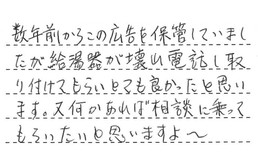 数年前からこの広告を保管していまし
たが給湯器が壊れ電話し取
り付けてもらいとても良かったと思い
ます。又何かあれば相談に乗って
もらいたいと思いますよ〜